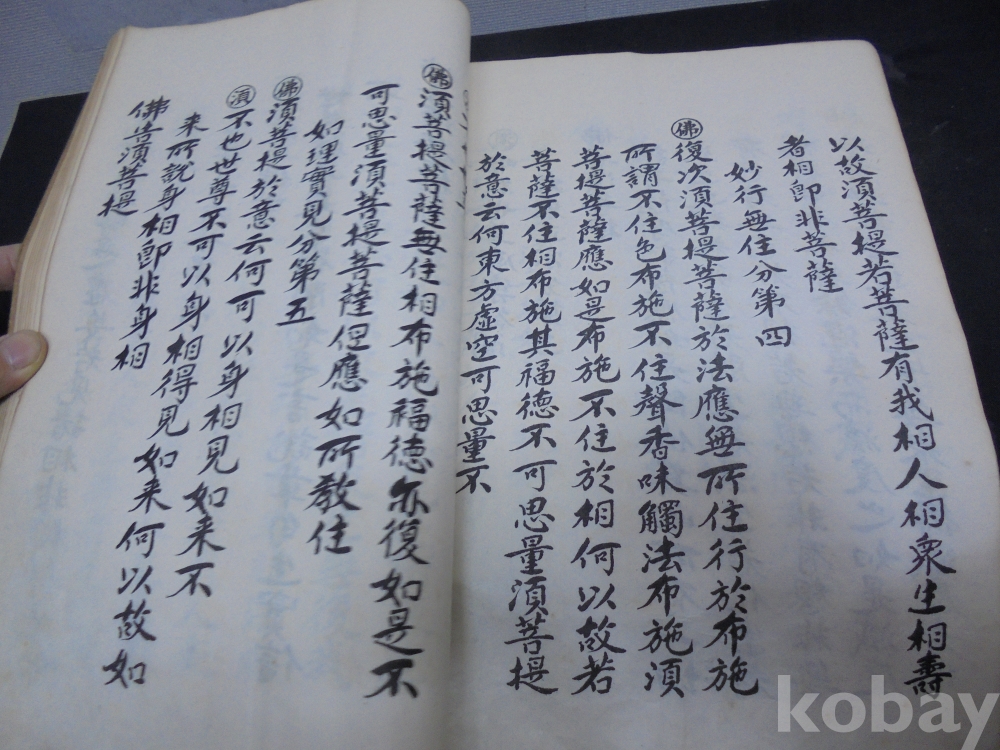 以故須菩提若菩薩有我相人相衆生相壽
者相即非菩薩
妙行無住分第四
佛復次須菩提菩薩於法應無所住行於布施
所謂不住色布施不住聲香味觸法布施須
菩提菩薩應如是布施不住於相何以故若
菩薩不住相布施其福德不可思量須菩提
於意云何東方虛空可思量不
佛須菩提菩薩無住相布施福德亦復如是不
可思量須菩提菩薩但應如所教住
如理實見分第五
佛須菩提於意云何可以身相見如来不
須不也世尊不可以身相得見如来何以故如
来所說身相即非身相
佛告須菩提
kobay